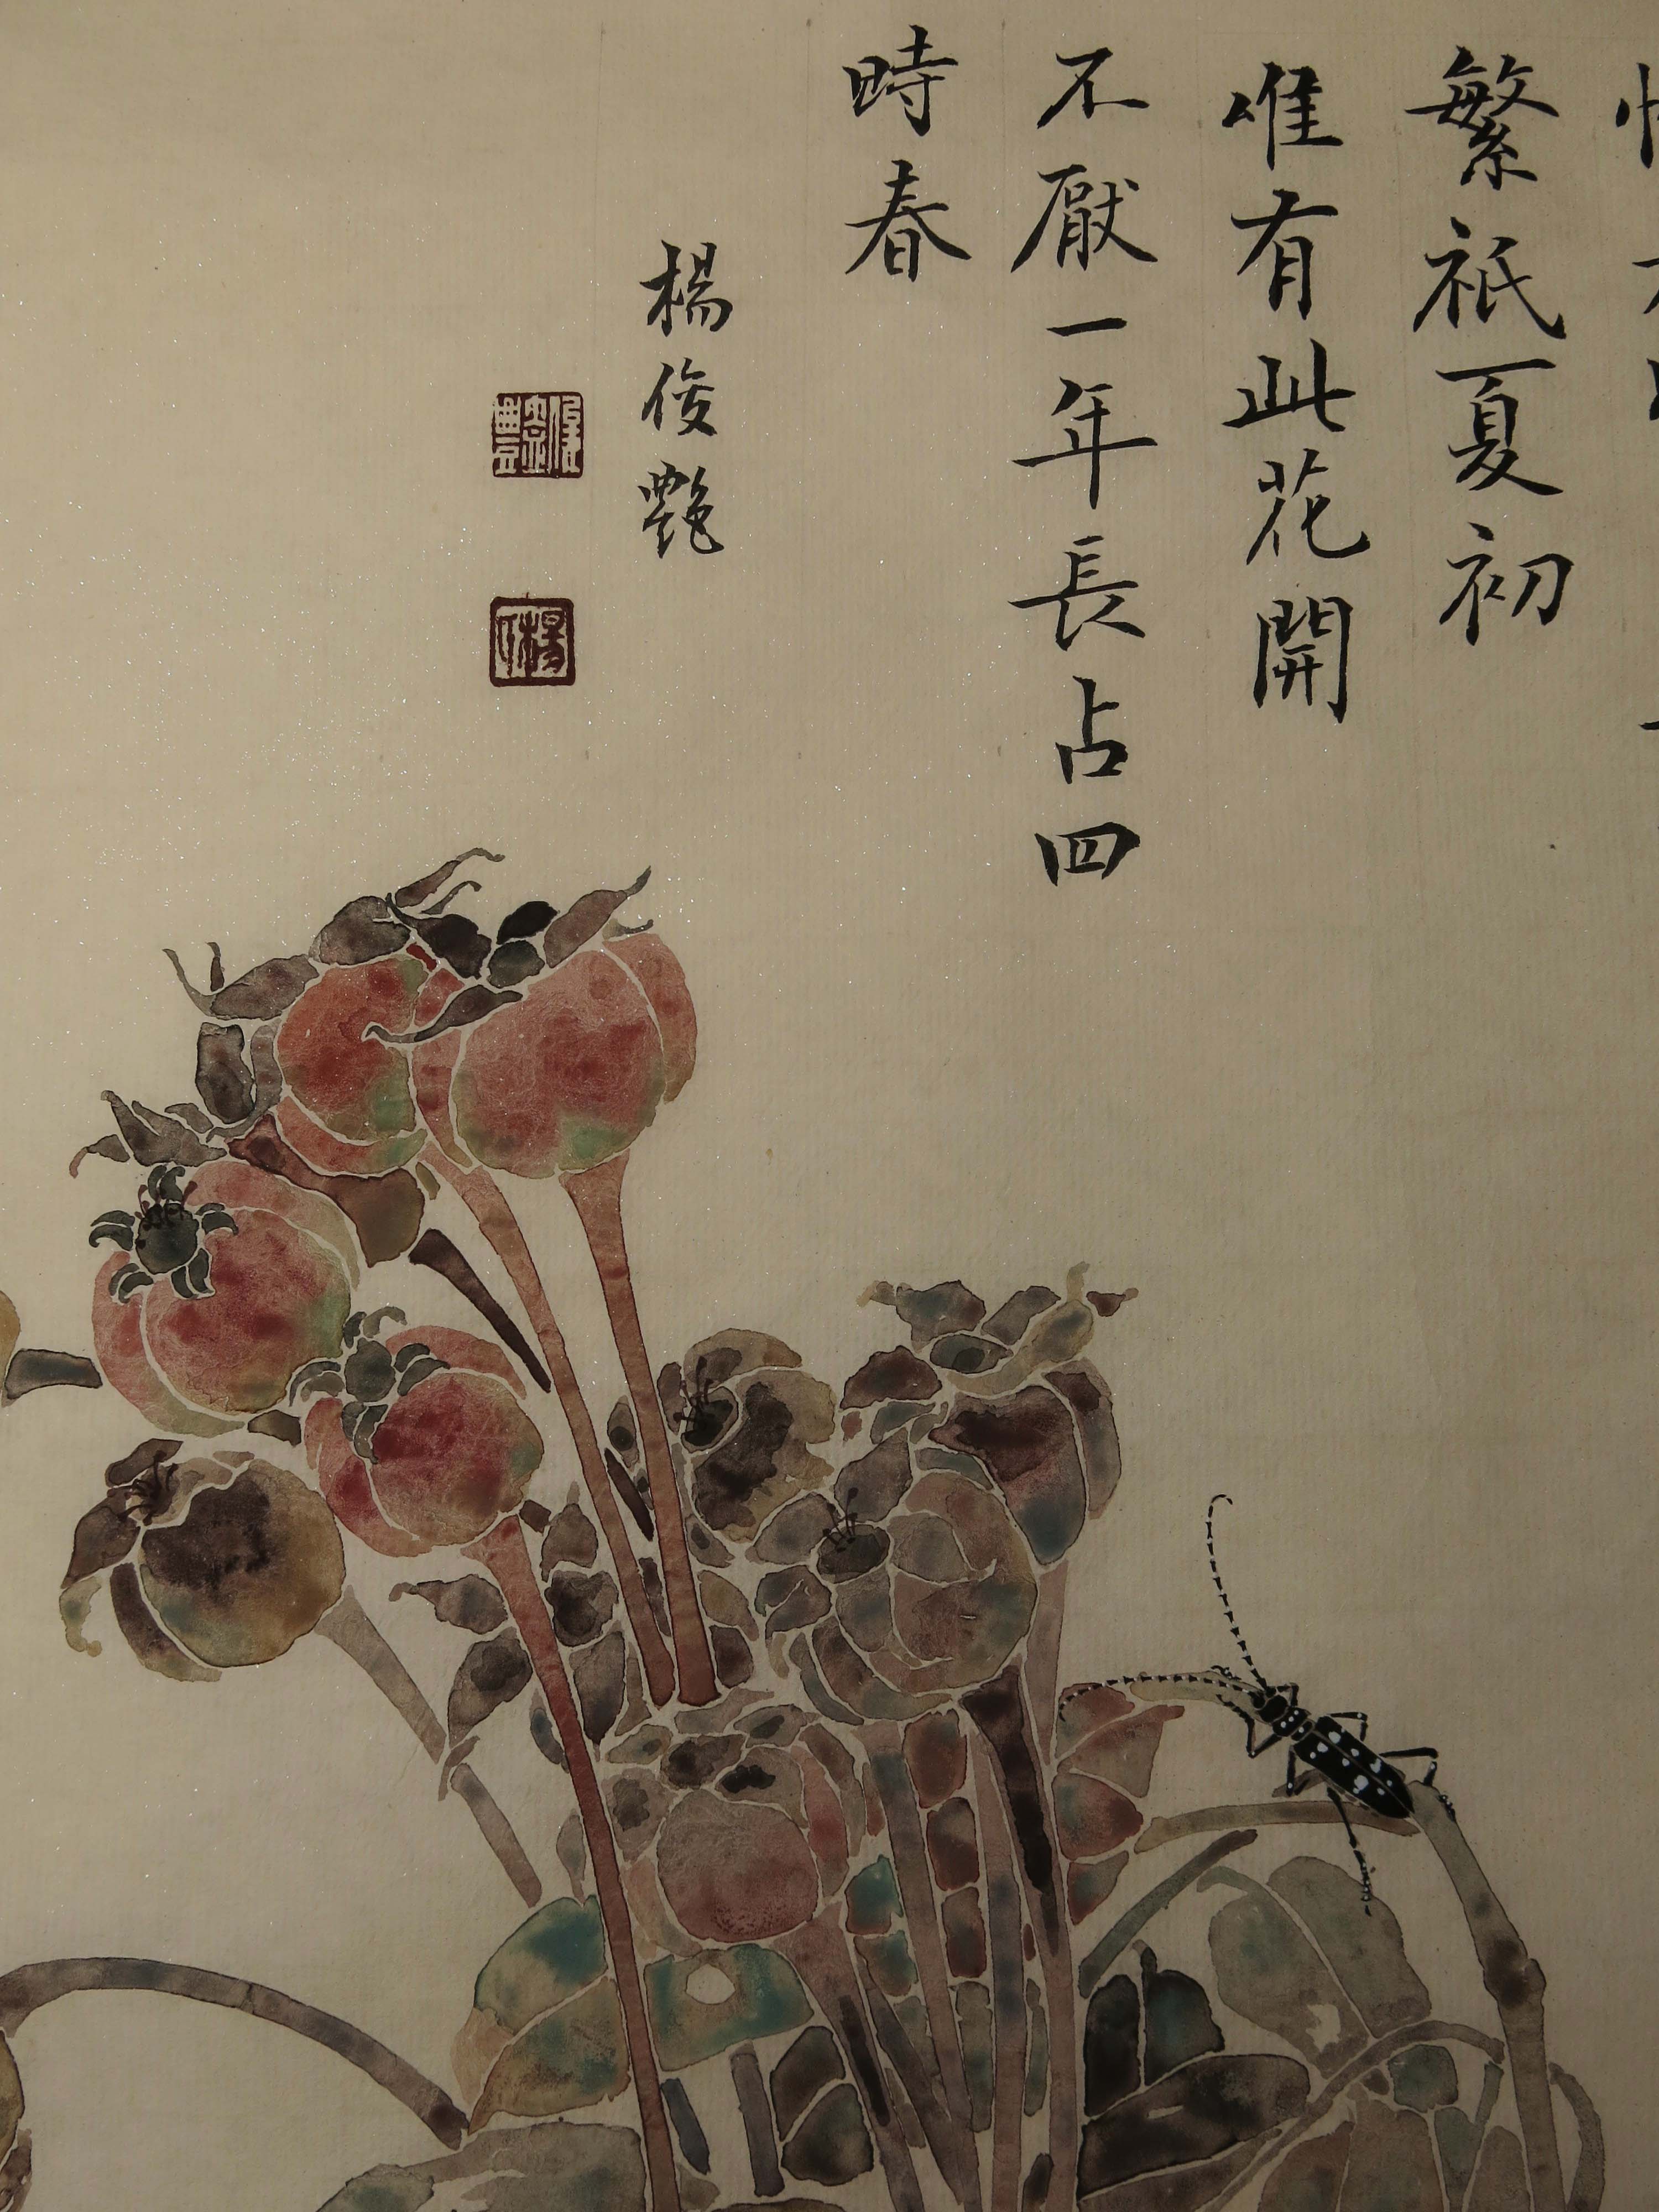 繁祇夏初
唯有此花開
不厭一年長占四
時春
楊俊艷
俊艷
楊